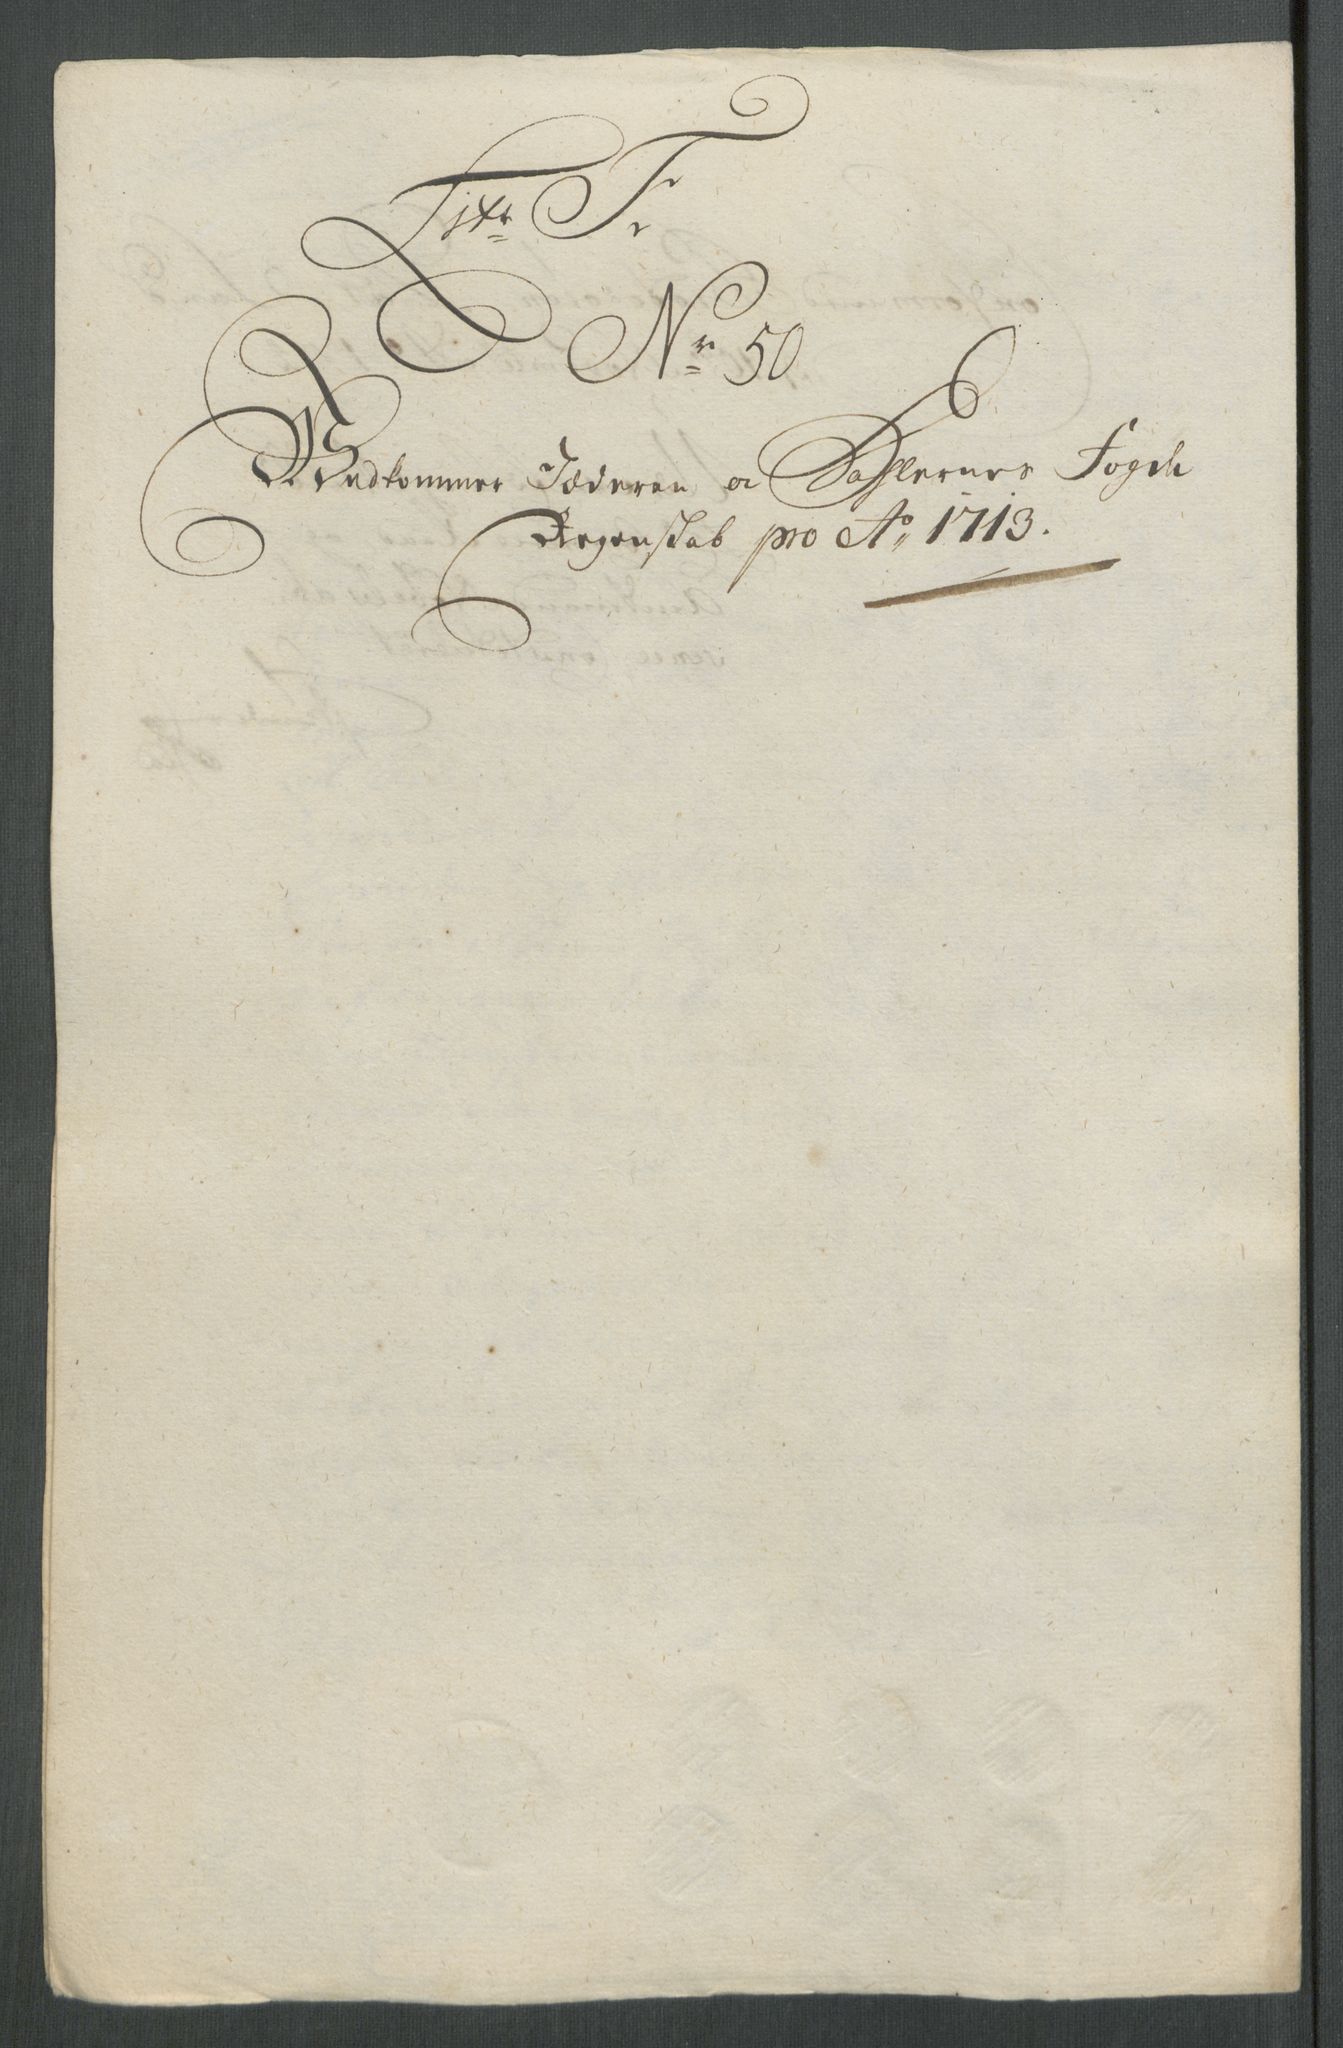 Litr F
Nr 50
Vedkommer Jæderen oc Dahlernes Fogde
Regenskab pro Ao 1713.